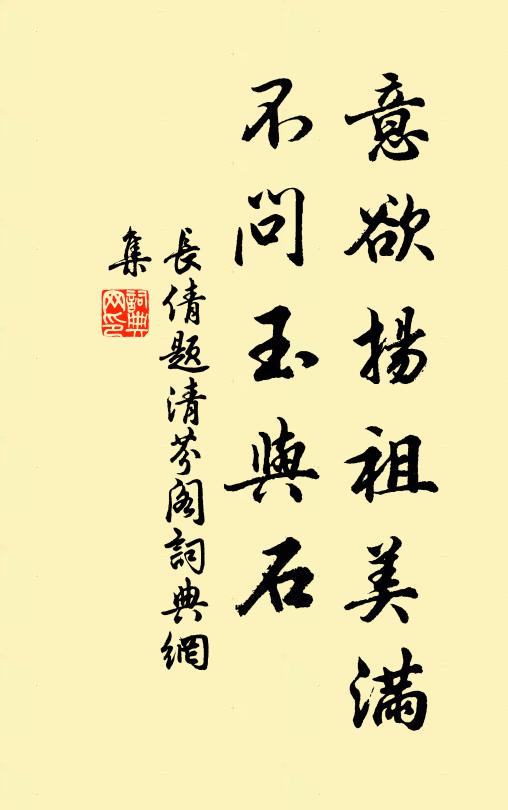 意欲揚祖美滿
不問玉與石
長倩題清芬阁詞典網
集
詞典网印